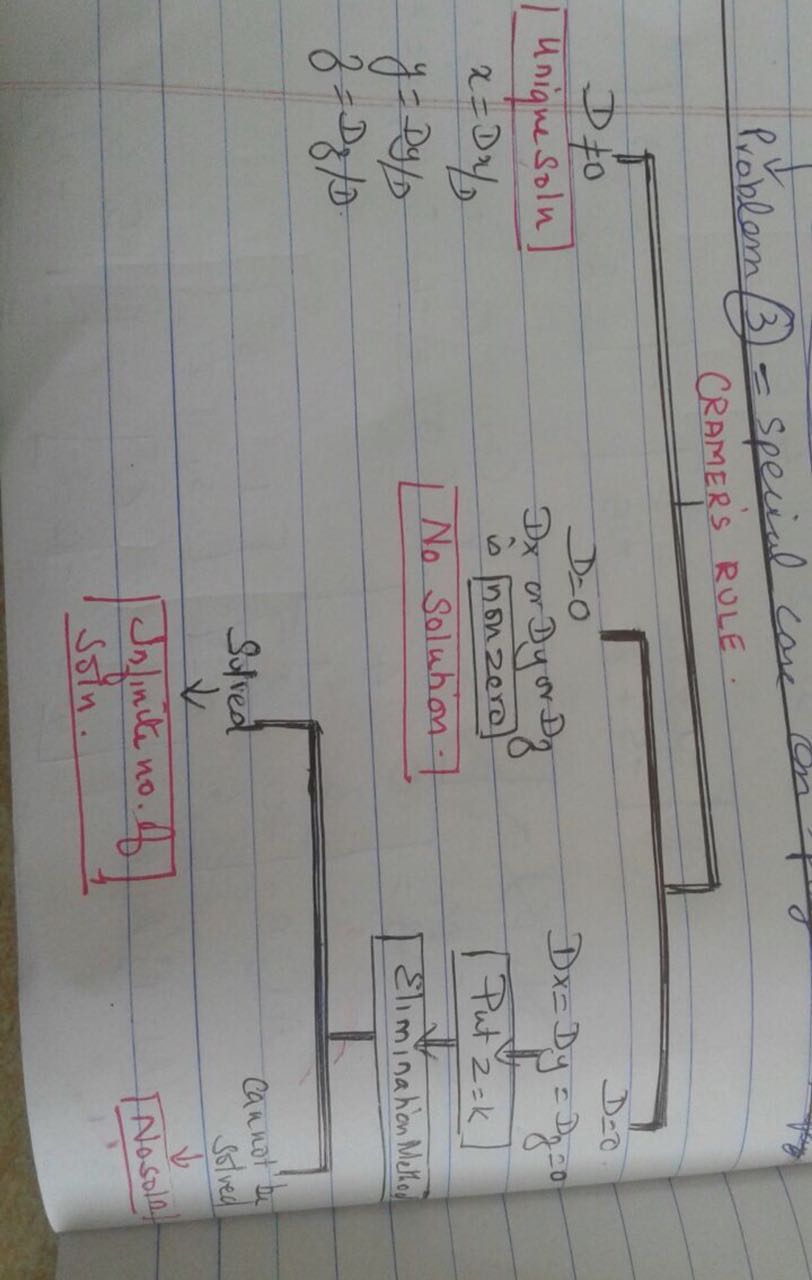 Problem (3) = Special case on
CRAMER'S RULE.
D≠0
Unique Soln
x = Dx/D
y = Dy/D
z = Dz/D.
D=0
Dx or Dy or Dz
is non zero
No Solution.
D=0.
Dx = Dy = Dz=0
Put z=k
Elimination Method
Solved
Infinite no. of
Soln.
Cannot be
solved
No soln